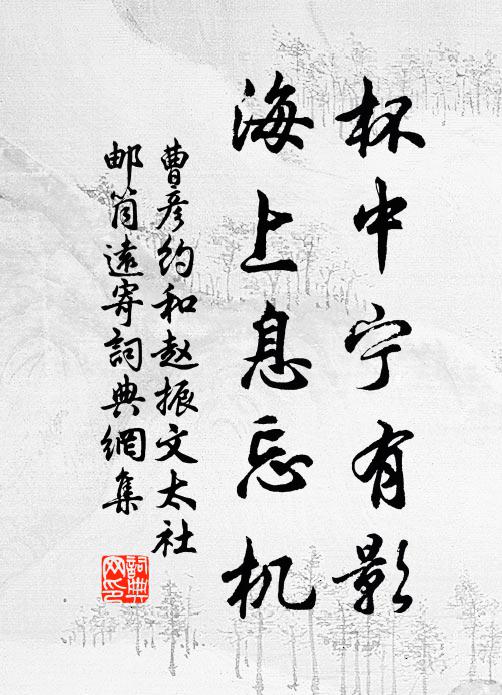 杯中宁有影
海上息忘机
曹彦约和赵振文太社
邮筒遠寄詞典網集
詞典网印